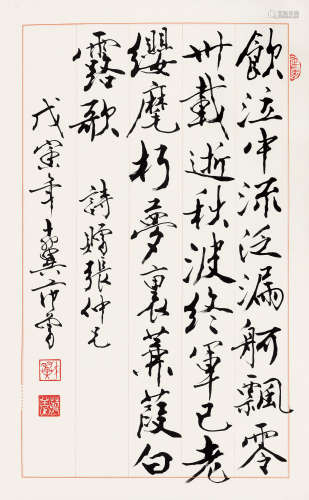 飲泣中流泛漏舸飄零
卅載逝秋波終軍已老
纓麾朽夢裏蒹葭白
露歌
詩賻張仲兄
戊寅年十翼范曾